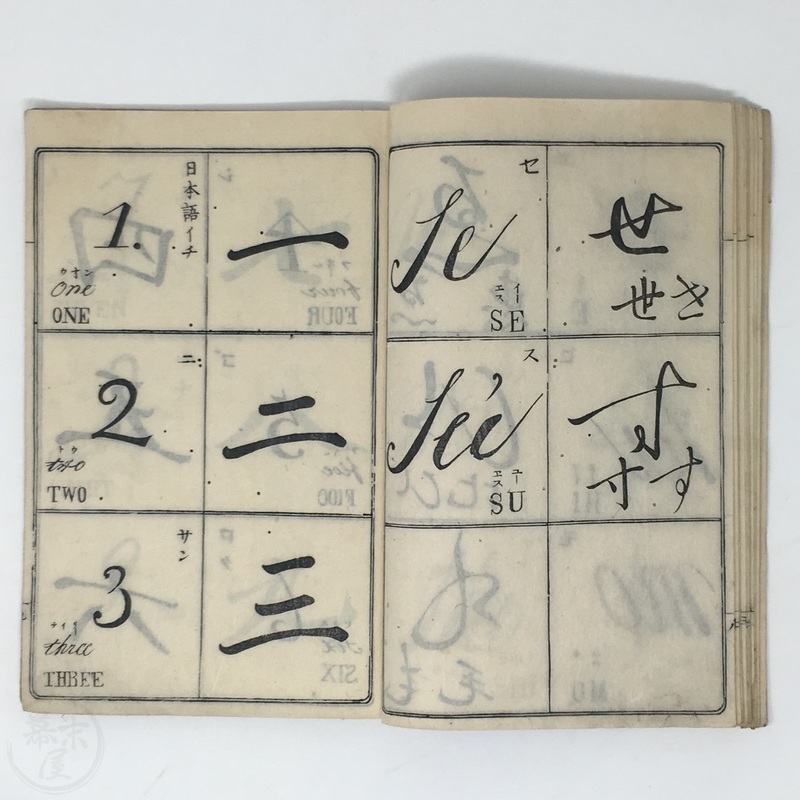 せ
世 せ
セ
Se
エス イー
SE
す
寸 す
ス
エス ユー
SU
一
日本語イチ
1.
ウオン
one
ONE
二
ニ
2
トウ
two
TWO
三
サン
3
three
THREE